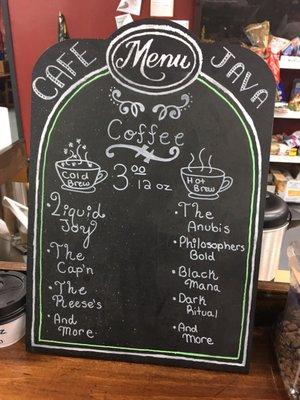 CAFE
Menu
JAVA
Coffee
Cold
Brew
3.00
12 oz
Hot
Brew
Liquid
Joy
· The
Cap'n
· The
Reese's
· And
More
· The
Anubis
· Philosophers
Bold
· Black
Mana
· Dark
Ritual
· And
More